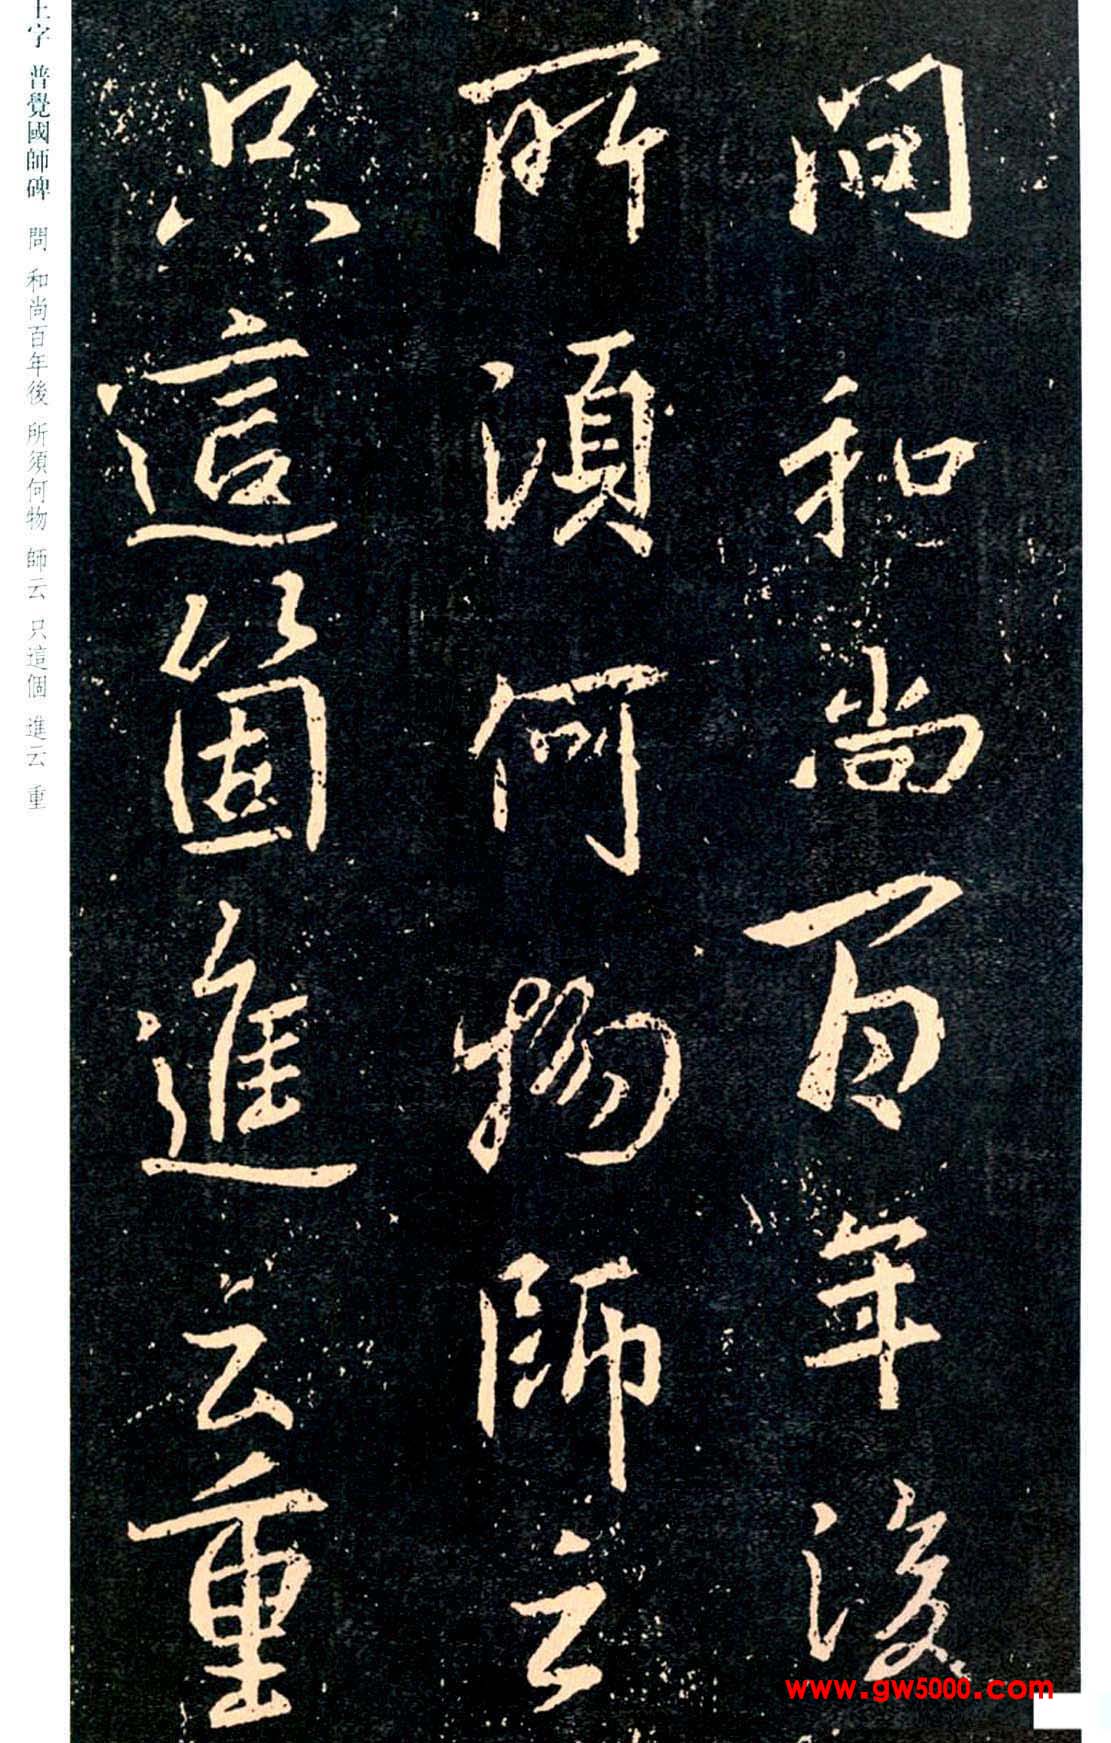 問和尚百年後
所須何物師云
只這箇進云重
普覺國師碑 問 和尚百年後 所須何物 師云 只這個 進云 重
www.gw5000.com